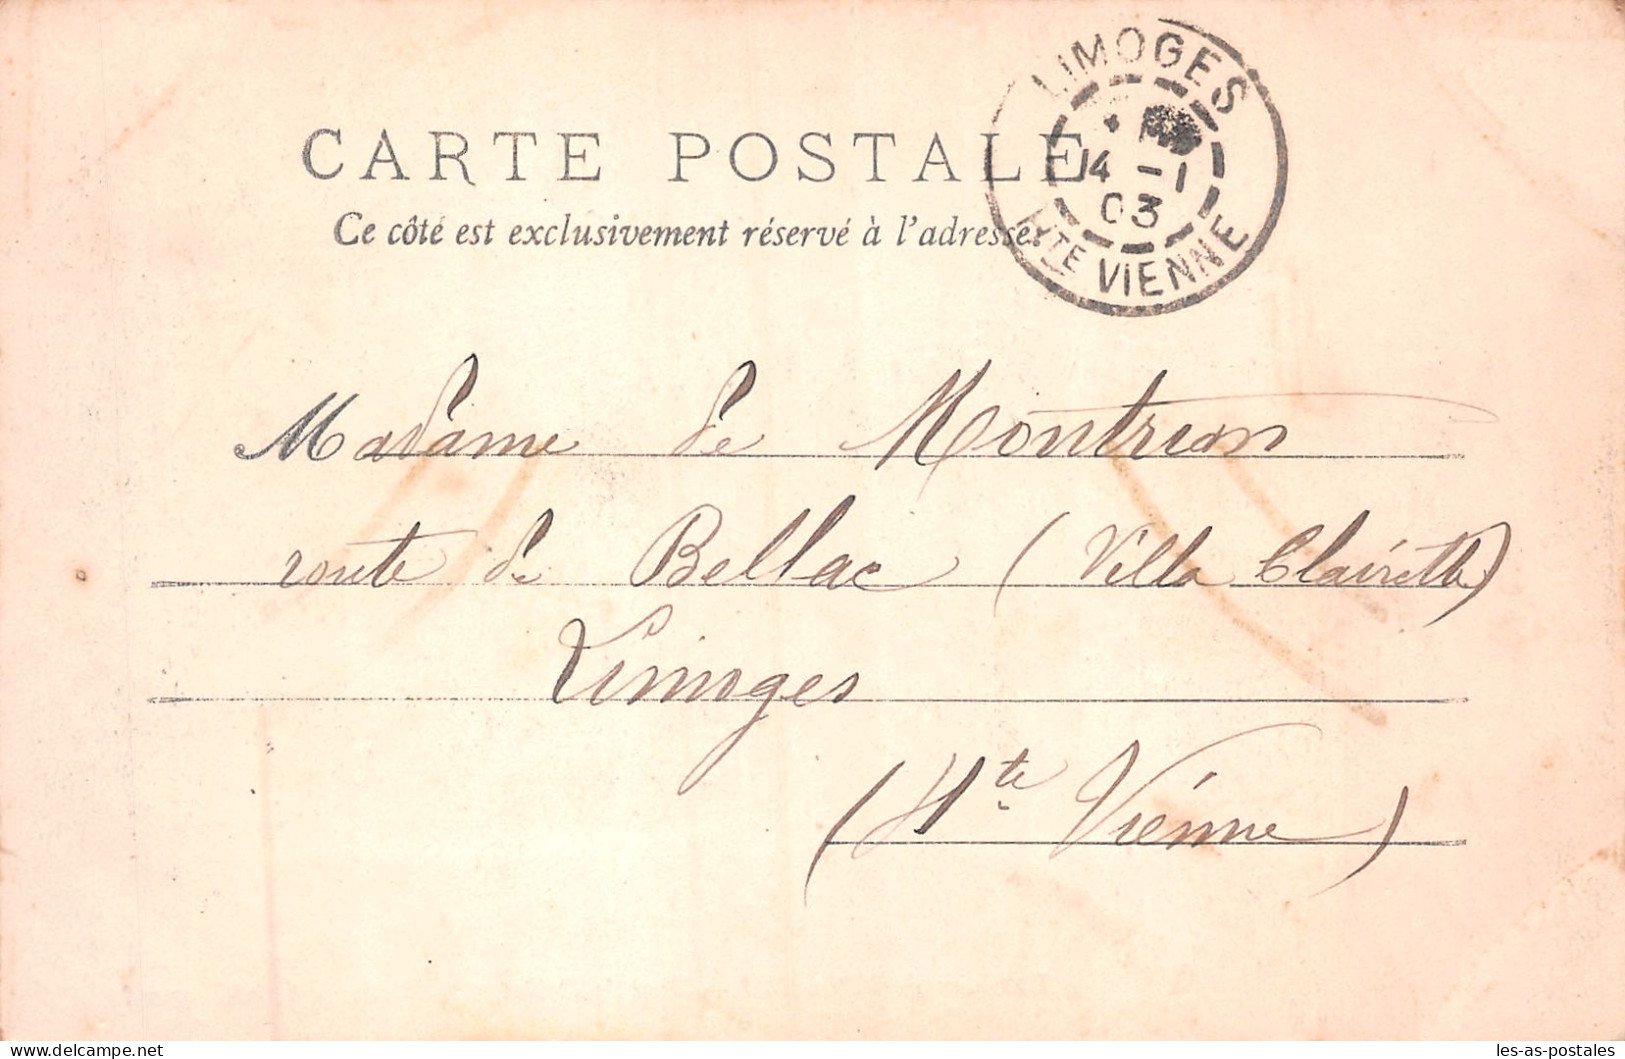 CARTE POSTALE
Ce côté est exclusivement réservé à l'adresse
LIMOGES
14 -1
03
HTE VIENNE
Madame de Montrian
route de Bellac (Villa Clairette)
Limoges
(Hte Viénne)
delcampe.net
les-as-postales